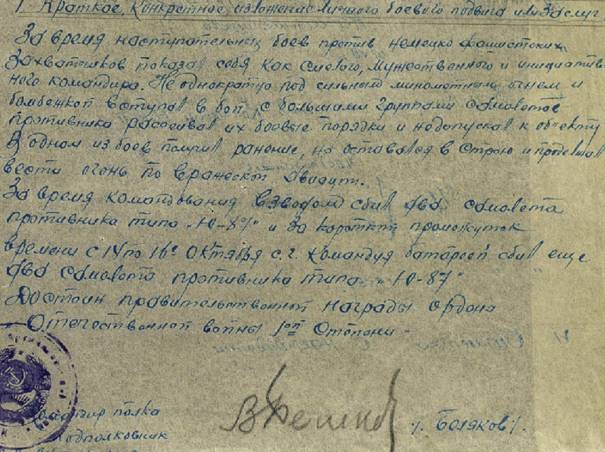 I. Краткое, конкретное изложение личного боевого подвига или заслуг
За время наступательных боев против немецко фашистских
захватчиков показал себя как смелого, мужественного и инициатив-
ного командира. Не однократно под сильным минометным огнем и
бомбежкой вступал в бой с большими группами самолетов
противника рассеивал их боевые порядки и недопускал к объекту
В одном из боев получил ранение, но оставался в строю и продолжал
вести огонь по вражеской авиации.
За время командования взводом сбил два самолета
противника типа "Ю-87" и за короткий промежуток
времени с 14 по 16 октября с.г. командуя батареей сбил еще
два самолета противника типа "Ю-87"
Достоин правительственной награды ордена
Отечественной войны 1ой степени.
полка
подполковник
/ Боляков /.